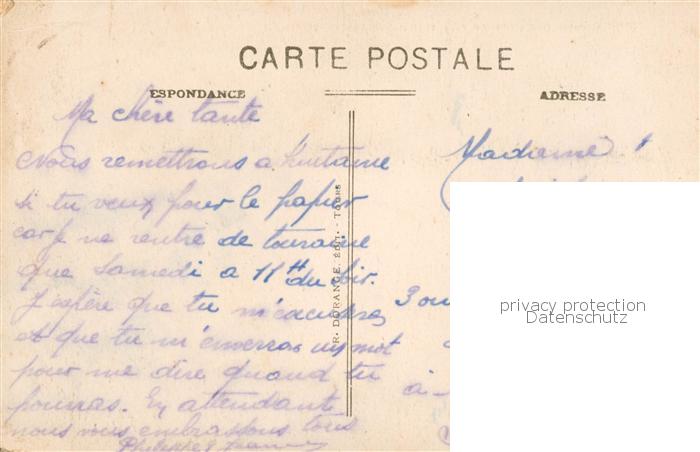 CARTE POSTALE
ESPONDANCE
ADRESSE
Ma chère tante
Nous remettrons a huitaine
si tu veux pour le papier
car je ne rentre de touraine
que Samedi a 11H du soir.
J'espère que tu m'excuseras
et que tu m'enverras un mot
pour me dire quand tu
pourras. En attendant
nous vous embrassons tous.
Philippe &
R. DORANGE, ÉDIT. - TOURS
Madame
3 ou
à
privacy protection
Datenschutz